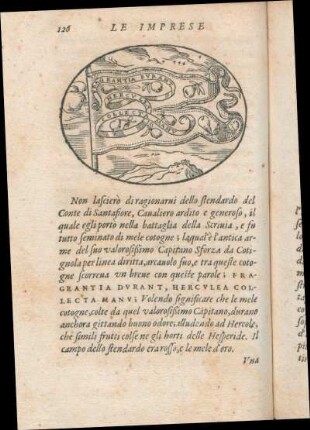 126 LE IMPRESE
FRAGRANTIA DVRANT
HERCV
COLLECTA
Non lascierò di ragionarui dello stendardo del
Conte di Santafiore, Caualiero ardito e generoso, il
quale egli portò nella battaglia della Scriuia, e fu
tutto seminato di mele cotogne; laqual'è l'antica ar-
me del suo valorosissimo Capitano Sforza da Coti-
gnola per linea diritta, arcauolo suo, e tra queste coto-
gne scorreua vn breue con queste parole; FRA-
GRANTIA DVRANT, HERCVLEA COL-
LECTA MANV; Volendo significare che le mele
cotogne, colte da quel valorosissimo Capitano, durano
anchora gittando buono odore, alludendo ad Hercole,
chè simili frutti colse ne gli horti delle Hesperide. Il
campo dello stendardo era rosso, e le mele d'oro.
Vna